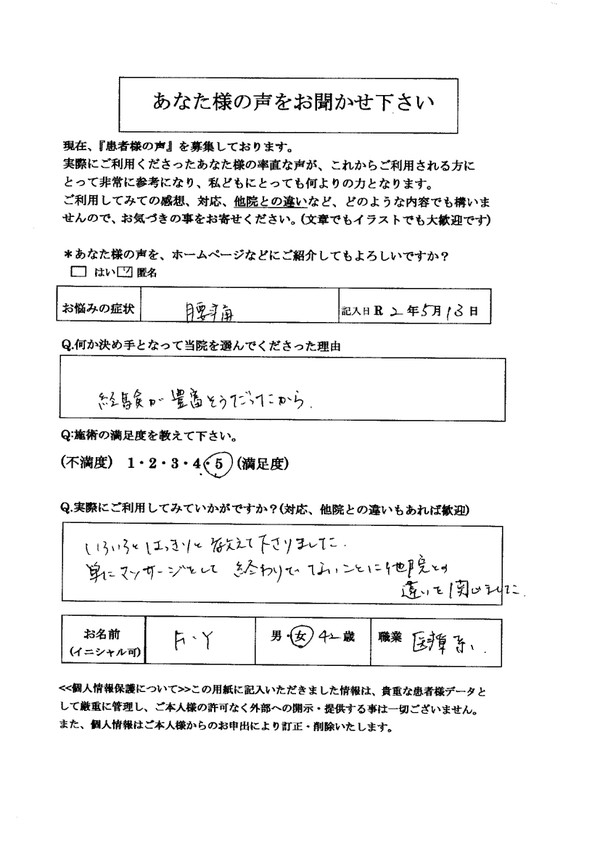 あなた様の声をお聞かせ下さい
現在、『患者様の声』を募集しております。
実際にご利用くださったあなた様の率直な声が、これからご利用される方に
とって非常に参考になり、私どもにとっても何よりの力となります。
ご利用してみての感想、対応、他院との違いなど、どのような内容でも構いま
せんので、お気づきの事をお寄せください。(文章でもイラストでも大歓迎です)
＊あなた様の声を、ホームページなどにご紹介してもよろしいですか？
□ はい ☑ 匿名
お悩みの症状 腰痛 記入日 R 2 年 5 月 13 日
Q.何か決め手となって当院を選んでくださった理由
経験が豊富そうだったから.
Q:施術の満足度を教えて下さい。
(不満度) 1・2・3・4・5 (満足度)
Q.実際にご利用してみていかがですか？(対応、他院との違いもあれば歓迎)
いろいろとはっきりと教えて下さりました.
単にマッサージとして 終わりでないことに他院との
違いを関じました.
お名前 (イニシャル可) F・Y 男・女 42 歳 職業 医療系
<<個人情報保護について>>この用紙に記入いただきました情報は、貴重な患者様データと
して厳重に管理し、ご本人様の許可なく外部への開示・提供する事は一切ございません。
また、個人情報はご本人様からのお申出により訂正・削除いたします。